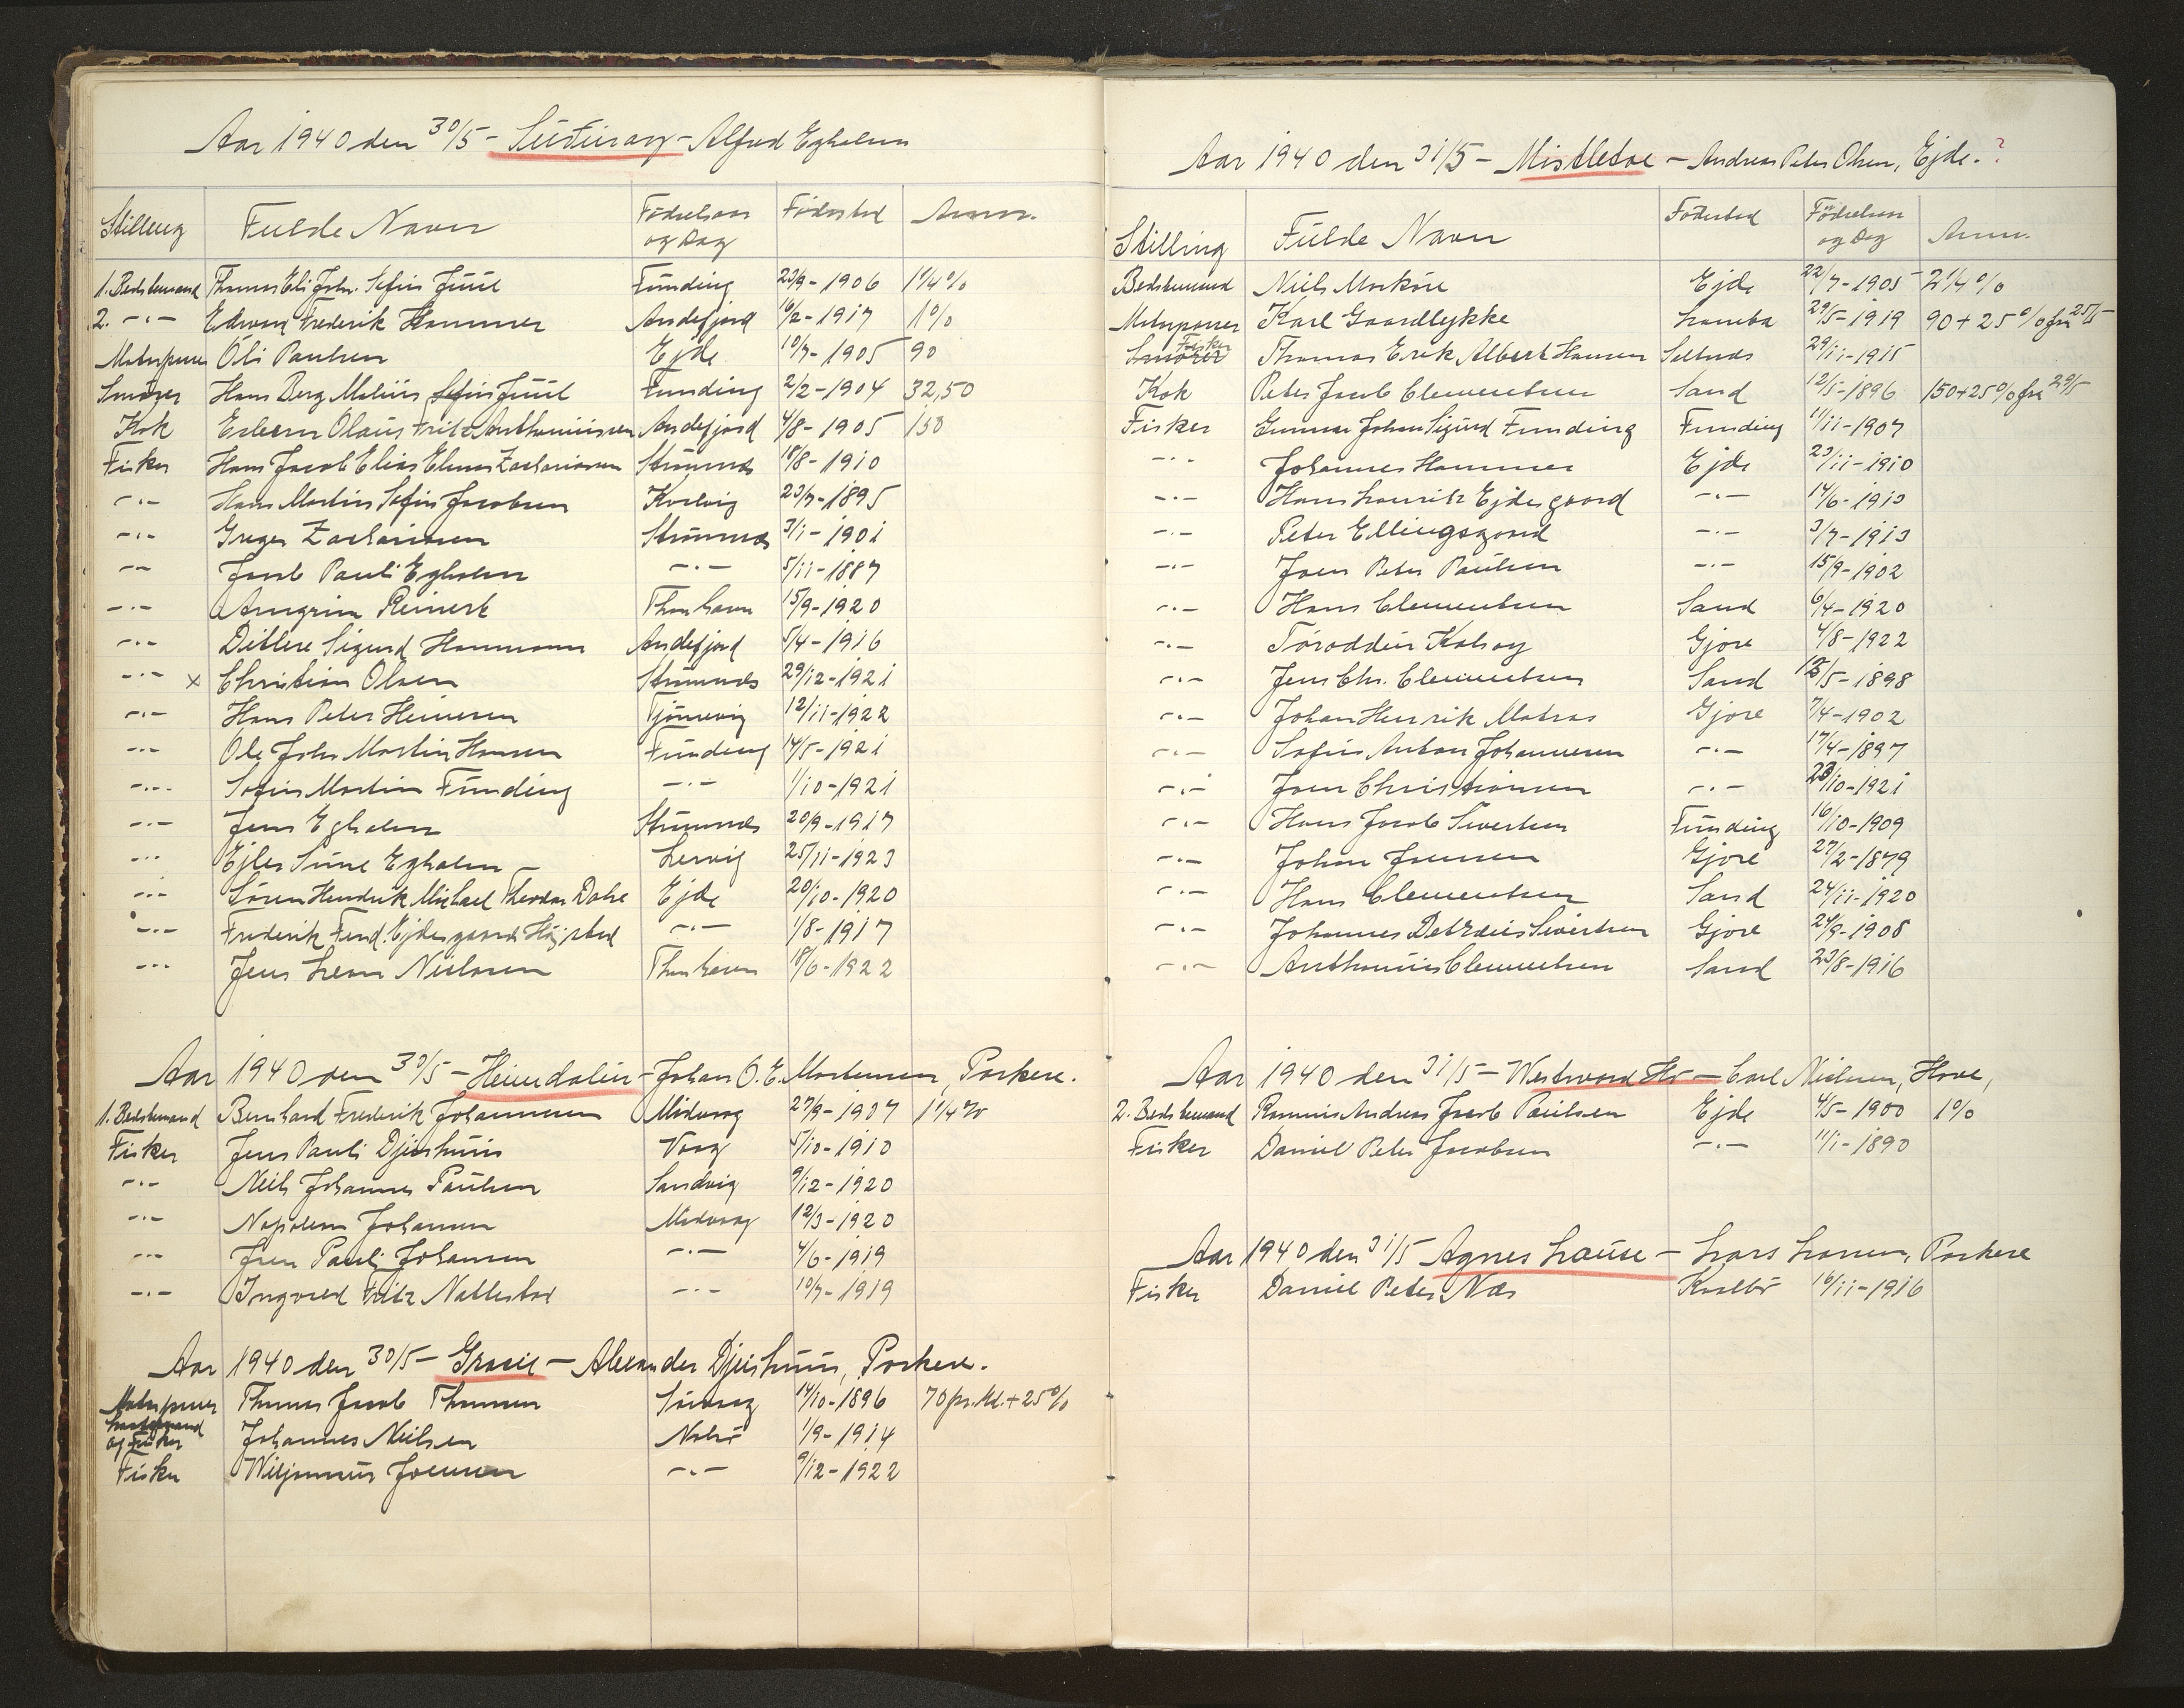 Aar 1940 den 30/5 - Suduroy - Alfred Egholm
Stilling Fulde Navn Födselsaar og Dag Födested Anm.
1. Bedstemand Thomas Eli Johs. Sofus Juul Funding 23/9-1906 1 1/4 %
2. -"- Edward Frederik Hammer Andefjord 16/2-1917 1%
Motorpasser Oli Paulsen Ejde 10/7-1905 90
Smörer Hans Berg Malius Sofus Juul Funding 2/2-1904 32,50
Kok Esbern Olaus Fritz Anthoniussen Andefjord 4/8-1905 150
Fisker Hans Jacob Elias Zachariasen Strömnæs 18/8-1910
-"- Hans Martin Sofus Jacobsen Kvalvig 23/7-1895
-"- Greger Zachariasen Strömnæs 3/1-1901
-"- Jacob Pauli Egholm -"- 5/11-1887
-"- Arngrim Reinert Thorshavn 15/9-1920
-"- Ditlere Sigurd Hammer Andefjord 5/4-1916
-"- x Christian Olsen Strömnæs 29/12-1921
-"- Hans Peter Heinesen Tjörnevig 12/11-1922
-"- Ole John Martin Hansen Funding 14/5-1921
-"- Sofus Martin Funding -"- 1/10-1921
-"- Jens Egholm Strömnæs 20/9-1917
-"- Ejler Sune Egholm Lervig 25/11-1923
-"- Sören Hendrik Michael Theodor Dahl Ejde 20/10-1920
-"- Frederik Ferd. Ejdesgaard Højsted -"- 1/8-1917
-"- Jens Leon Nielsen Thorshavn 18/6-1922
Aar 1940 den 30/5 - Heimdalin - Johan O. E. Mortensen, Porkere.
1. Bedstemand Bernhard Frederik Johannesen Midvaag 27/9-1907 1 1/4 %
Fisker Jens Pauli Djurhuus Vaag 5/10-1910
-"- Niels Johannes Paulsen Sandvig 9/12-1920
-"- Napoleon Johansen Midvaag 12/3-1920
-"- Jens Pauli Johansen -"- 4/6-1919
-"- Ingvard Fritz Nattestad -"- 10/7-1919
Aar 1940 den 30/5 - Gracie - Alexander Djurhuus, Porkere.
Motorpasser Thomas Jacob Thomsen Sörvaag 14/10-1896 70 pr. Md. + 25%
og Fisker Johannes Nielsen Nolsö 1/9-1914
Fisker Wiljormur Joensen -"- 9/12-1922
Aar 1940 den 31/5 - Mistletoe - Andreas Peter Olsen, Ejde. ?
Stilling Fulde Navn Födested Födselsaar og Dag Anm.
Bedstemand Niels Morköre Ejde 22/7-1905 2 1/4 %
Motorpasser Karl Gaardlykke Lamba 29/5-1919 90 + 25% fra 25/5
Smörer Fisker Thomas Erik Albert Hansen Seltnæs 29/11-1915
Kok Peter Jacob Clementsen Sand 12/5-1896 150+25% fra 29/5
Fisker Gunnar Johan Sigurd Funding Funding 11/11-1907
-"- Johannes Hammer Ejde 23/11-1910
-"- Hans Lauritz Ejdesgaard -"- 14/6-1913
-"- Peter Ellingsgaard -"- 3/7-1913
-"- Joen Peter Paulsen -"- 15/9-1902
-"- Hans Clementsen Sand 6/4-1920
-"- Töroddur Kalsoy Gjore 4/8-1922
-"- Jens Chr. Clementsen Sand 12/5-1898
-"- Johan Henrik Matras Gjore 7/4-1902
-"- Sofus Anton Johannesen -"- 17/4-1897
-"- Joen Christiansen -"- 28/10-1921
-"- Hans Jacob Sivertsen Funding 16/10-1909
-"- Johan Joensen Gjore 27/2-1879
-"- Hans Clementsen Sand 24/11-1920
-"- Johannes Detleius Sivertsen Gjore 24/9-1908
-"- Anthonius Clementsen Sand 23/8-1916
Aar 1940 den 31/5 - Westward Ho - Carl Nielsen, Hove,
2. Bedstemand Rasmus Andreas Jacob Paulsen Ejde 4/5-1900 1%
Fisker Daniel Peter Jacobsen -"- 11/1-1890
Aar 1940 den 31/5 Agnes Louise - Lars Larsen, Porkere
Fisker Daniel Peter Næs Kvalbö 16/11-1916